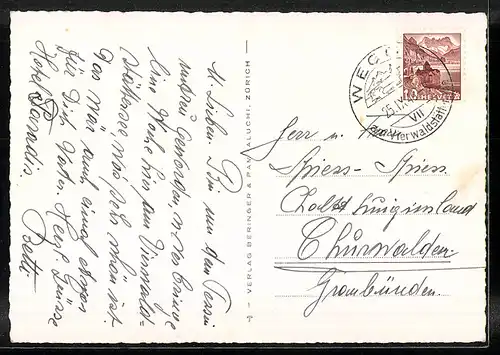 M. Lieben. Bin nun dem Tessin
untreu geworden u. verbringe
eine Woche hier am Vierwald-
stättersee was sich schön ist.
Das wär auch einmal etwas
für Dich Vater. Herzl. Grüsse
Hotel Paradis. Betti.
— VERLAG BERINGER & PAMPALUCHI, ZÜRICH —
WEGGIS
VII
Vierwaldstätt
10
HELVETIA
Herrn u.
Spiess-Spiess
Chalet
Churwalden
Graubünden.